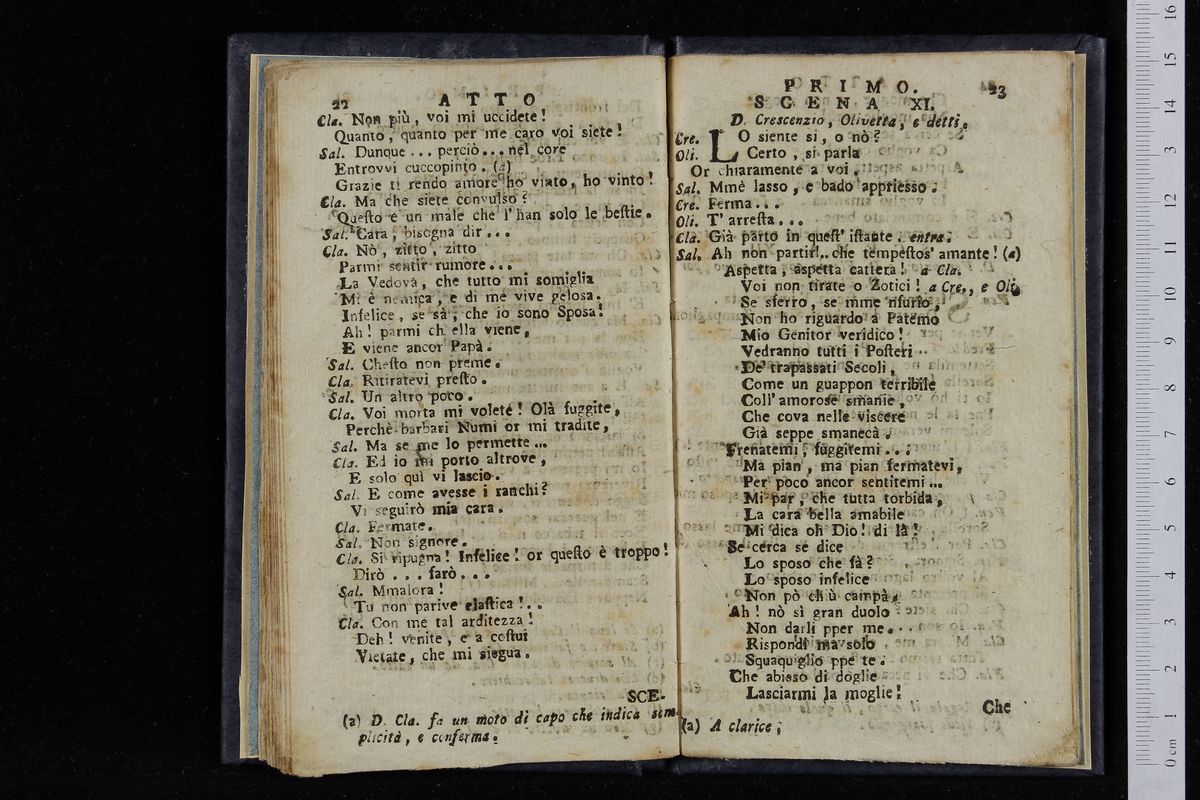 22 ATTO
Cla. Non più, voi mi uccidete!
Quanto, quanto per me caro voi siete!
Sal. Dunque ... perciò ... nel core
Entrovvi cuccopinto. (a)
Grazie ti rendo amore ho vinto, ho vinto!
Cla. Ma che siete convulso?
Questo è un male che l'han solo le bestie.
Sal. Cara, bisogna dir ...
Cla. Nò, zitto, zitto
Parmi sentir rumore...
La Vedova, che tutto mi somiglia
Mi è nemica, e di me vive gelosa.
Infelice, se sà, che io sono Sposa!
Ah! parmi ch ella viene,
E viene ancor Papà.
Sal. Chesto non preme.
Cla. Ritiratevi presto.
Sal. Un altro poco.
Cla. Voi morta mi volete! Olà fuggite,
Perchè barbari Numi or mi tradite,
Sal. Ma se me lo permette ...
Cla. Ed io mi porto altrove,
E solo quì vi lascio.
Sal. E come avesse i ranchi?
Vi seguirò mia cara.
Cla. Fermate.
Sal. Non signore.
Cla. Si ripugna! Infelice! or questo è troppo!
Dirò ... farò ...
Sal. Mmalora!
Tu non parive elastica!..
Cla. Con me tal arditezza!
Deh! venite, e a costui
Vietate, che mi siegua.
SCE-
(a) D. Cla. fa un moto di capo che indica sem-
plicità, e conferma.
PRIMO. 23
SCENA XI.
D. Crescenzio, Olivetta, e detti.
Cre. LO siente si, o nò?
Oli. Certo, si parla
Or chiaramente a voi.
Sal. Mmè lasso, e bado appriesso.
Cre. Ferma...
Oli. T' arresta...
Cla. Già parto in quest' istante. entra.
Sal. Ah non partir!..che tempestos' amante! (a)
Aspetta, aspetta cattera! a Cla.
Voi non tirate o Zotici! a Cre., e Oli.
Se sferro, se mme nfurio,
Non ho riguardo a Patemo
Mio Genitor veridico!
Vedranno tutti i Posteri
De' trapassati Secoli,
Come un guappon terribile
Coll' amorose smanie,
Che cova nelle viscere
Già seppe smanecà.
Frenatemi, fuggitemi...
Ma pian, ma pian fermatevi,
Per poco ancor sentitemi ...
Mi par, che tutta torbida,
La cara bella amabile
Mi dica oh Dio! di là!
Se cerca se dice
Lo sposo che fà?
Lo sposo infelice
Non pò chiù campà.
Ah! nò sì gran duolo
Non darli pper me...
Rispondi ma solo
Squaquiglio ppe te.
Che abisso di doglie
Lasciarmi la moglie!
Che
(a) A clarice;